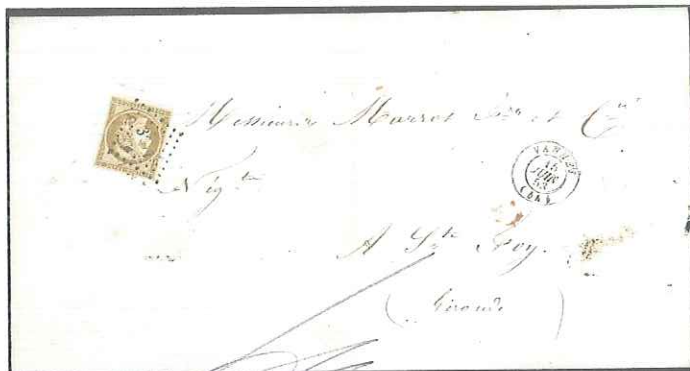 Messieurs Marrot et Cie
Négts
VANNES
15
JUIN
53
A Ste Foy.
(Gironde)